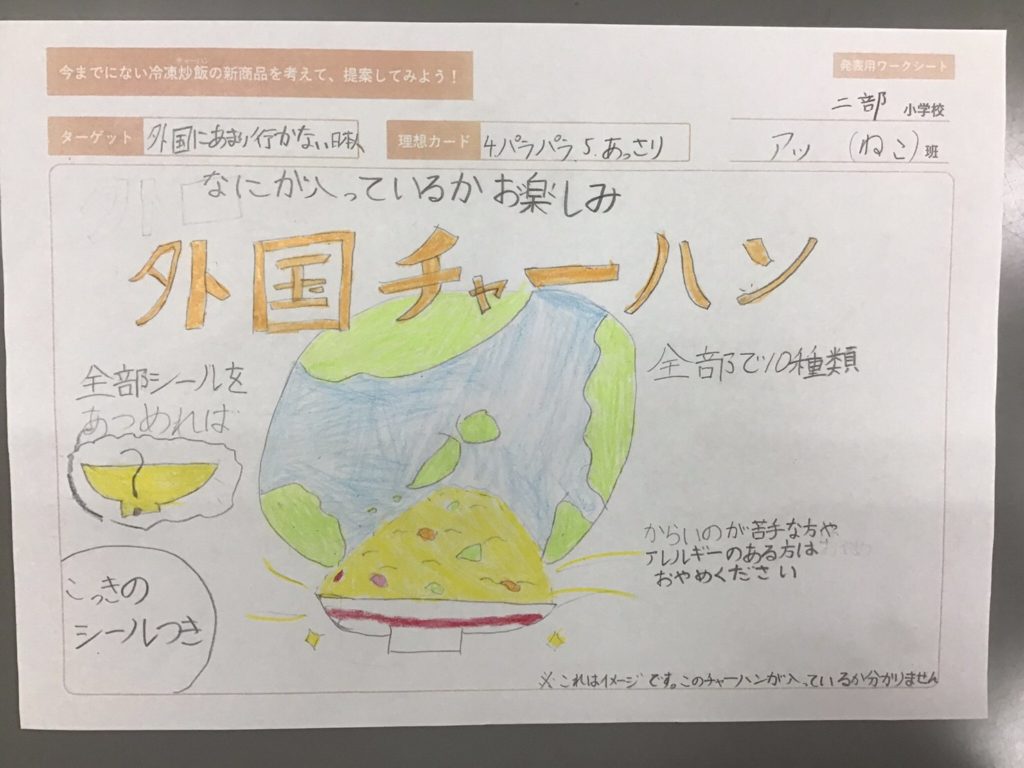 今までにない冷凍炒飯の新商品を考えて、提案してみよう!
チャーハン
発表用ワークシート
二部 小学校
ターゲット 外国にあまり行かない日本人
理想カード 4.パラパラ、5.あっさり
アッ (ねこ)班
なにが入っているかお楽しみ
外国チャーハン
全部で10種類
全部シールを
あつめれば
?
こっきの
シールつき
からいのが苦手な方や
アレルギーのある方は
おやめください
※これはイメージです。このチャーハンが入っているか分かりません